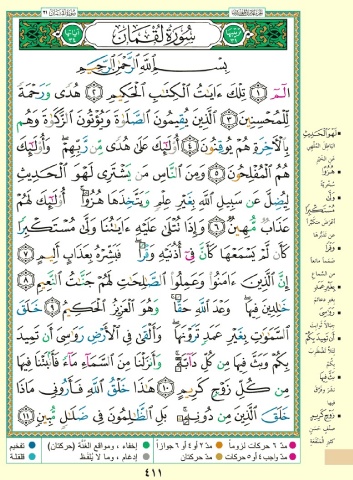 سُورَةُ لُقْمَان
بِسْمِ اللَّهِ الرَّحْمَٰنِ الرَّحِيمِ
الٓمٓ ١ تِلْكَ ءَايَٰتُ الْكِتَٰبِ الْحَكِيمِ ٢ هُدًى وَرَحْمَةً
لِّلْمُحْسِنِينَ ٣ الَّذِينَ يُقِيمُونَ الصَّلَوٰةَ وَيُؤْتُونَ الزَّكَوٰةَ وَهُم
بِالْءَاخِرَةِ هُمْ يُوقِنُونَ ٤ أُو۟لَٰٓئِكَ عَلَىٰ هُدًى مِّن رَّبِّهِمْ ۖ وَأُو۟لَٰٓئِكَ
هُمُ الْمُفْلِحُونَ ٥ وَمِنَ النَّاسِ مَن يَشْتَرِى لَهْوَ الْحَدِيثِ
لِيُضِلَّ عَن سَبِيلِ اللَّهِ بِغَيْرِ عِلْمٍ وَيَتَّخِذَهَا هُزُوًا ۚ أُو۟لَٰٓئِكَ لَهُمْ
عَذَابٌ مُّهِينٌ ٦ وَإِذَا تُتْلَىٰ عَلَيْهِ ءَايَٰتُنَا وَلَّىٰ مُسْتَكْبِرًا
كَأَن لَّمْ يَسْمَعْهَا كَأَنَّ فِىٓ أُذُنَيْهِ وَقْرًا ۖ فَبَشِّرْهُ بِعَذَابٍ أَلِيمٍ ٧
إِنَّ الَّذِينَ ءَامَنُوا۟ وَعَمِلُوا۟ الصَّٰلِحَٰتِ لَهُمْ جَنَّٰتُ النَّعِيمِ ٨
خَٰلِدِينَ فِيهَا ۖ وَعْدَ اللَّهِ حَقًّا ۚ وَهُوَ الْعَزِيزُ الْحَكِيمُ ٩ خَلَقَ
السَّمَٰوَٰتِ بِغَيْرِ عَمَدٍ تَرَوْنَهَا ۖ وَأَلْقَىٰ فِى الْأَرْضِ رَوَٰسِىَ أَن تَمِيدَ
بِكُمْ وَبَثَّ فِيهَا مِن كُلِّ دَآبَّةٍ ۚ وَأَنزَلْنَا مِنَ السَّمَآءِ مَآءً فَأَنۢبَتْنَا فِيهَا
مِن كُلِّ زَوْجٍ كَرِيمٍ ١٠ هَٰذَا خَلْقُ اللَّهِ فَأَرُونِى مَاذَا
خَلَقَ الَّذِينَ مِن دُونِهِۦ ۚ بَلِ الظَّٰلِمُونَ فِى ضَلَٰلٍ مُّبِينٍ ١١
لَهْوَ الْحَدِيثِ
هُزُوًا
وَلَّىٰ
مُسْتَكْبِرًا
وَقْرًا
بِغَيْرِ عَمَدٍ
رَوَٰسِىَ
أَن تَمِيدَ بِكُمْ
بَثَّ فِيهَا
زَوْجٍ كَرِيمٍ
مدّ ٦ حركات لزوماً
مدّ ٢ أو ٤ أو ٦ جوازاً
إخفاء ، ومواقع الغُنَّة (حركتان)
تفخيم
مدّ واجب ٤ أو ٥ حركات
مدّ حركتان
إدغام ، وما لا يُلفَظ
قلقلة
٤١١